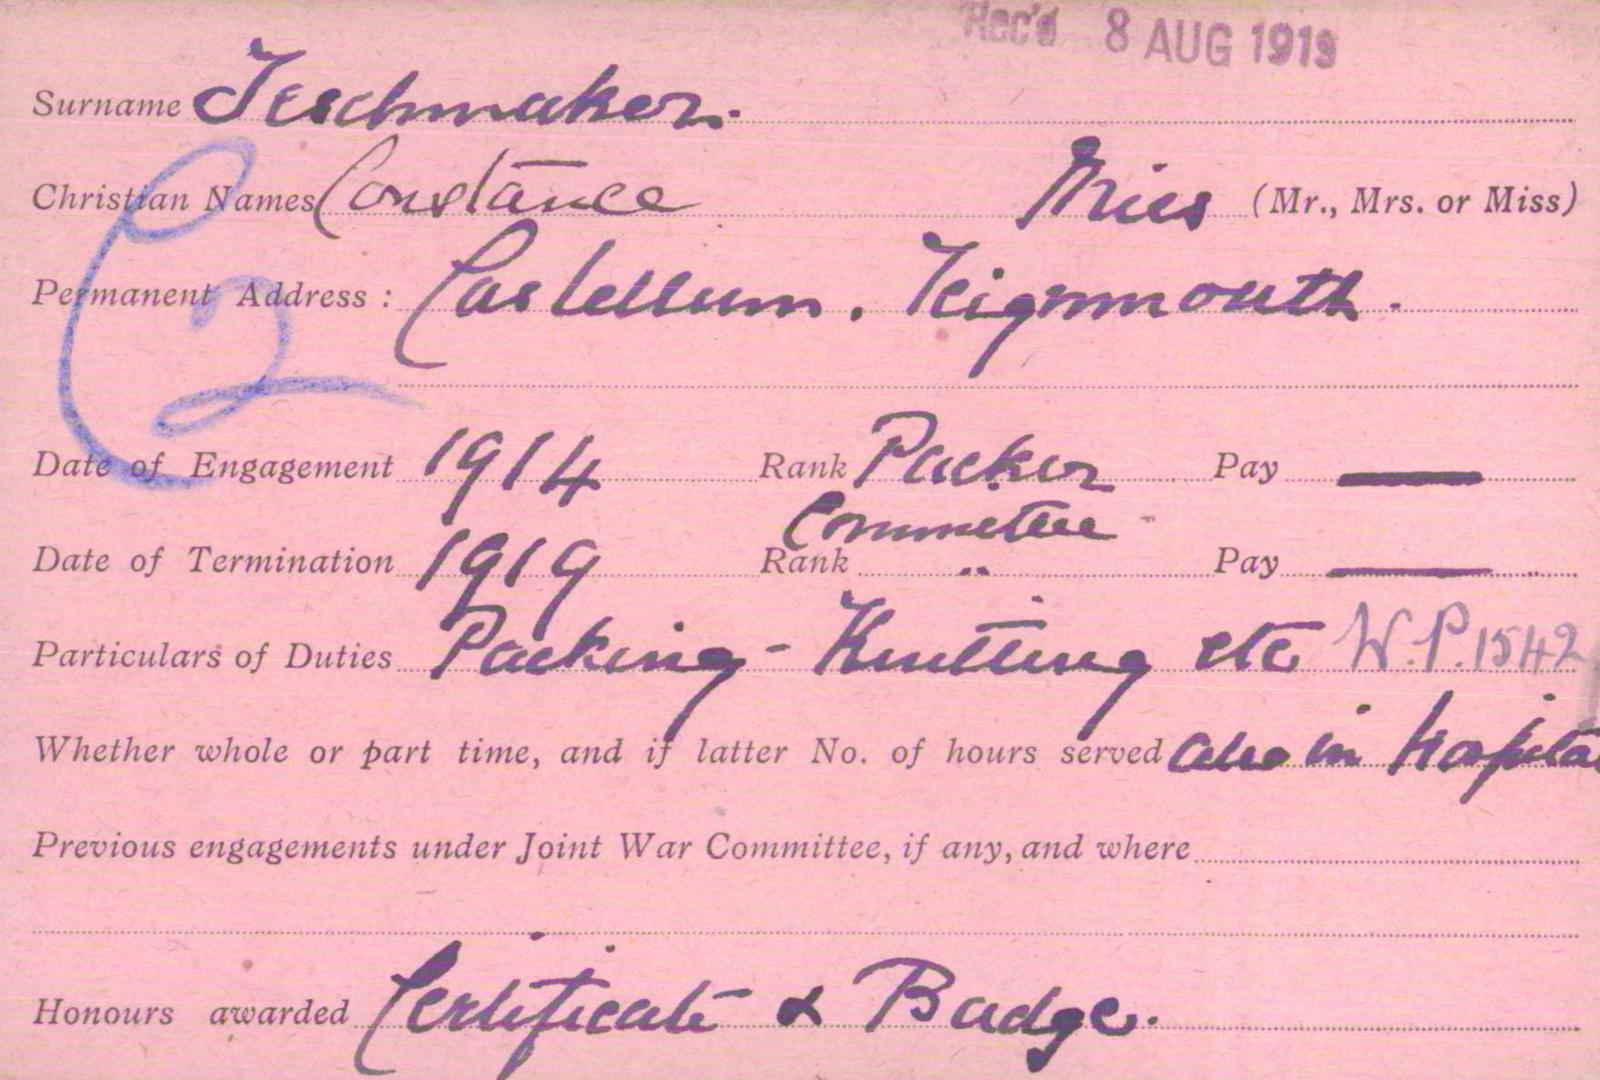 Rec'd 8 AUG 1919
Surname Teschmaker.
Christian Names Constance Miss (Mr., Mrs. or Miss)
Permanent Address: Castellum. Teignmouth.
Date of Engagement 1914 Rank Packer Pay —
Committee
Date of Termination 1919 Rank " Pay —
Particulars of Duties Packing - Knitting etc W.P. 1542
Whether whole or part time, and if latter No. of hours served also in hospital
Previous engagements under Joint War Committee, if any, and where
Honours awarded Certificate & Badge.